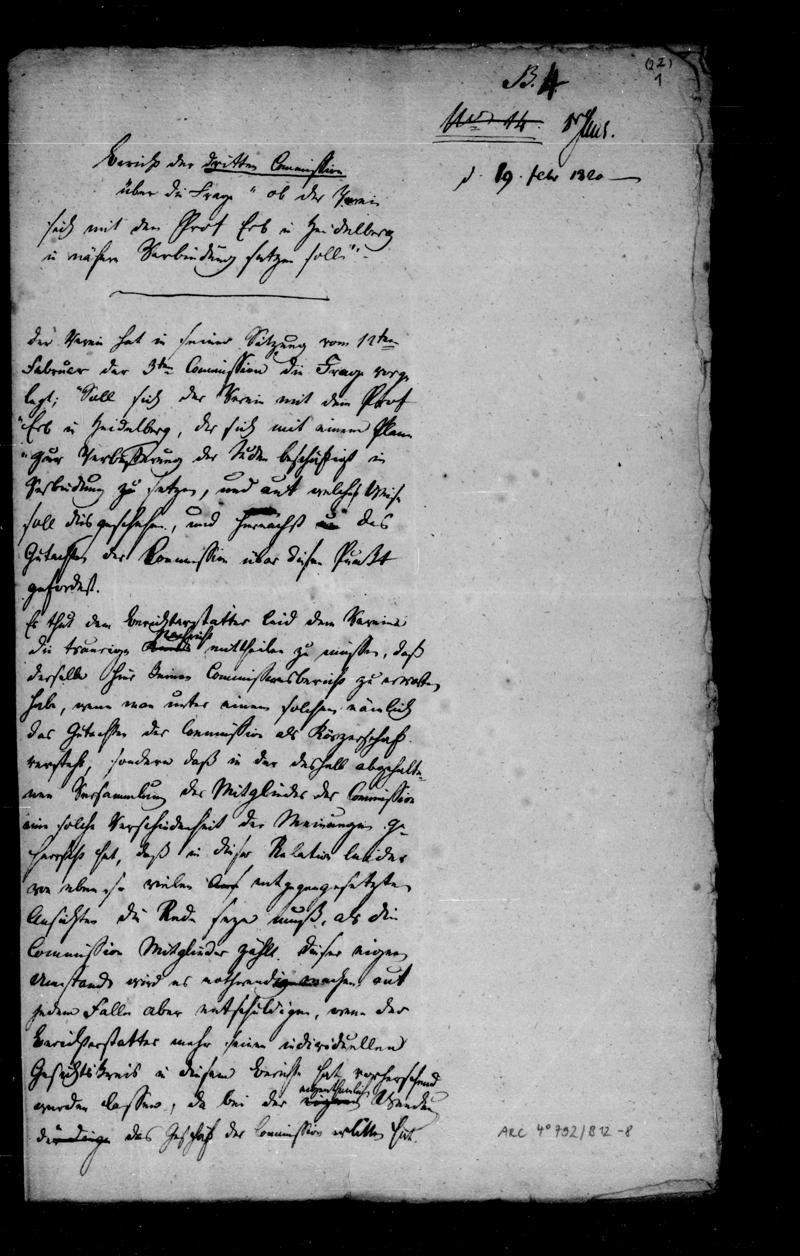 (22)
1
B. 4
No 14.
d. 19. febr 1820
Bericht der dritten Commission
über die Frage "ob der Verein
sich mit dem Prof Erb in Heidelberg
in nähere Verbindung setzen soll"
Der Verein hat in seiner Sitzung vom 12ten
Februar der 3ten Commission die Frage vorge
legt; "Soll sich der Verein mit dem Prof
"Erb in Heidelberg, der sich mit einem Plan
"zur Verbesserung der Juden beschäftigt in
Verbindung zu setzen, und auf welche Weise
soll dies geschehen, und hernächst das
Gutachten der Commission über diesen Punkt
gefordert.
Es thut dem Berichterstatter leid dem Vereine
die traurige Nachricht mittheilen zu müssen, daß
derselbe hier keinen Commissionsbericht zu erwarten
habe, wenn man unter einem solchen nämlich
das Gutachten der Commission als Körperschaft
versteht, sondern daß in der deshalb abgehalte-
nen Versammlung der Mitglieder der Commission
eine solche Verschiedenheit der Meinungen ge-
herrscht hat, daß in dieser Relation leider
von eben so vielen entgegengesetzten
Ansichten die Rede seyn muß, als die
Commission Mitglieder zählt. Dieser eigene
Umstand wird es nothwendig machen auf
jeden Fall aber entschuldigen, wenn der
Berichterstatter mehr seinen individuellen
Gesichtskreis in diesem Berichte hat vorherrschend
werden lassen, da bei der eigenthümlichen Wendung
die das Geschäft der Commission erlitten hat.
ARC 4° 792/B12-8